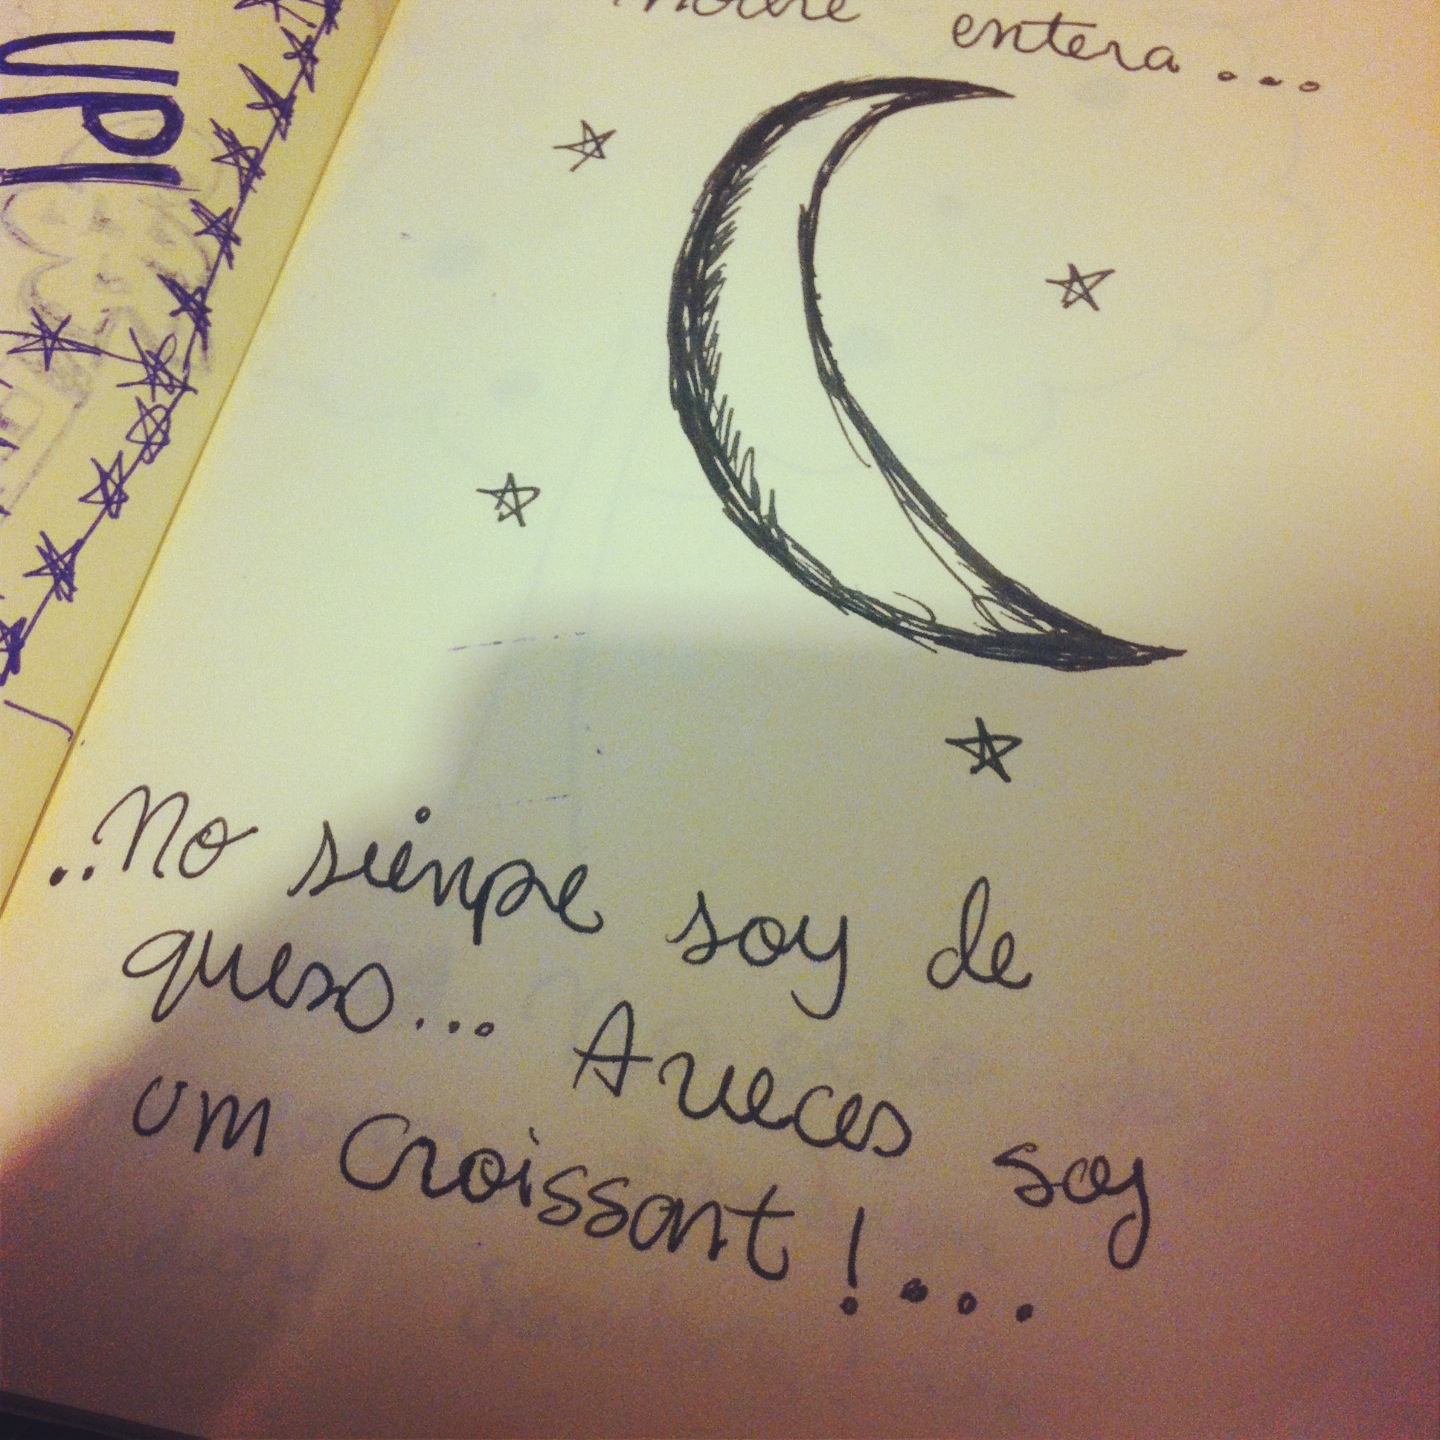 entera...
..No sienpre soy de
queso... A veces soy
um croissant!...
UPI